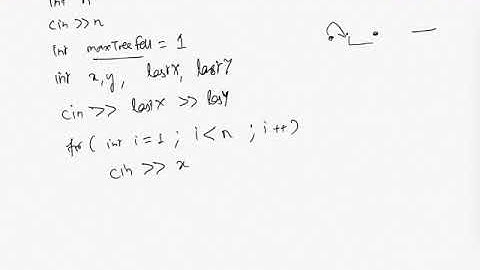 int n
cin >> n
int maxTreefell = 1
int x, y, lastX, lastY
cin >> lastX >> lasY
for ( int i = 1 ; i < n ; i++)
cin >> x